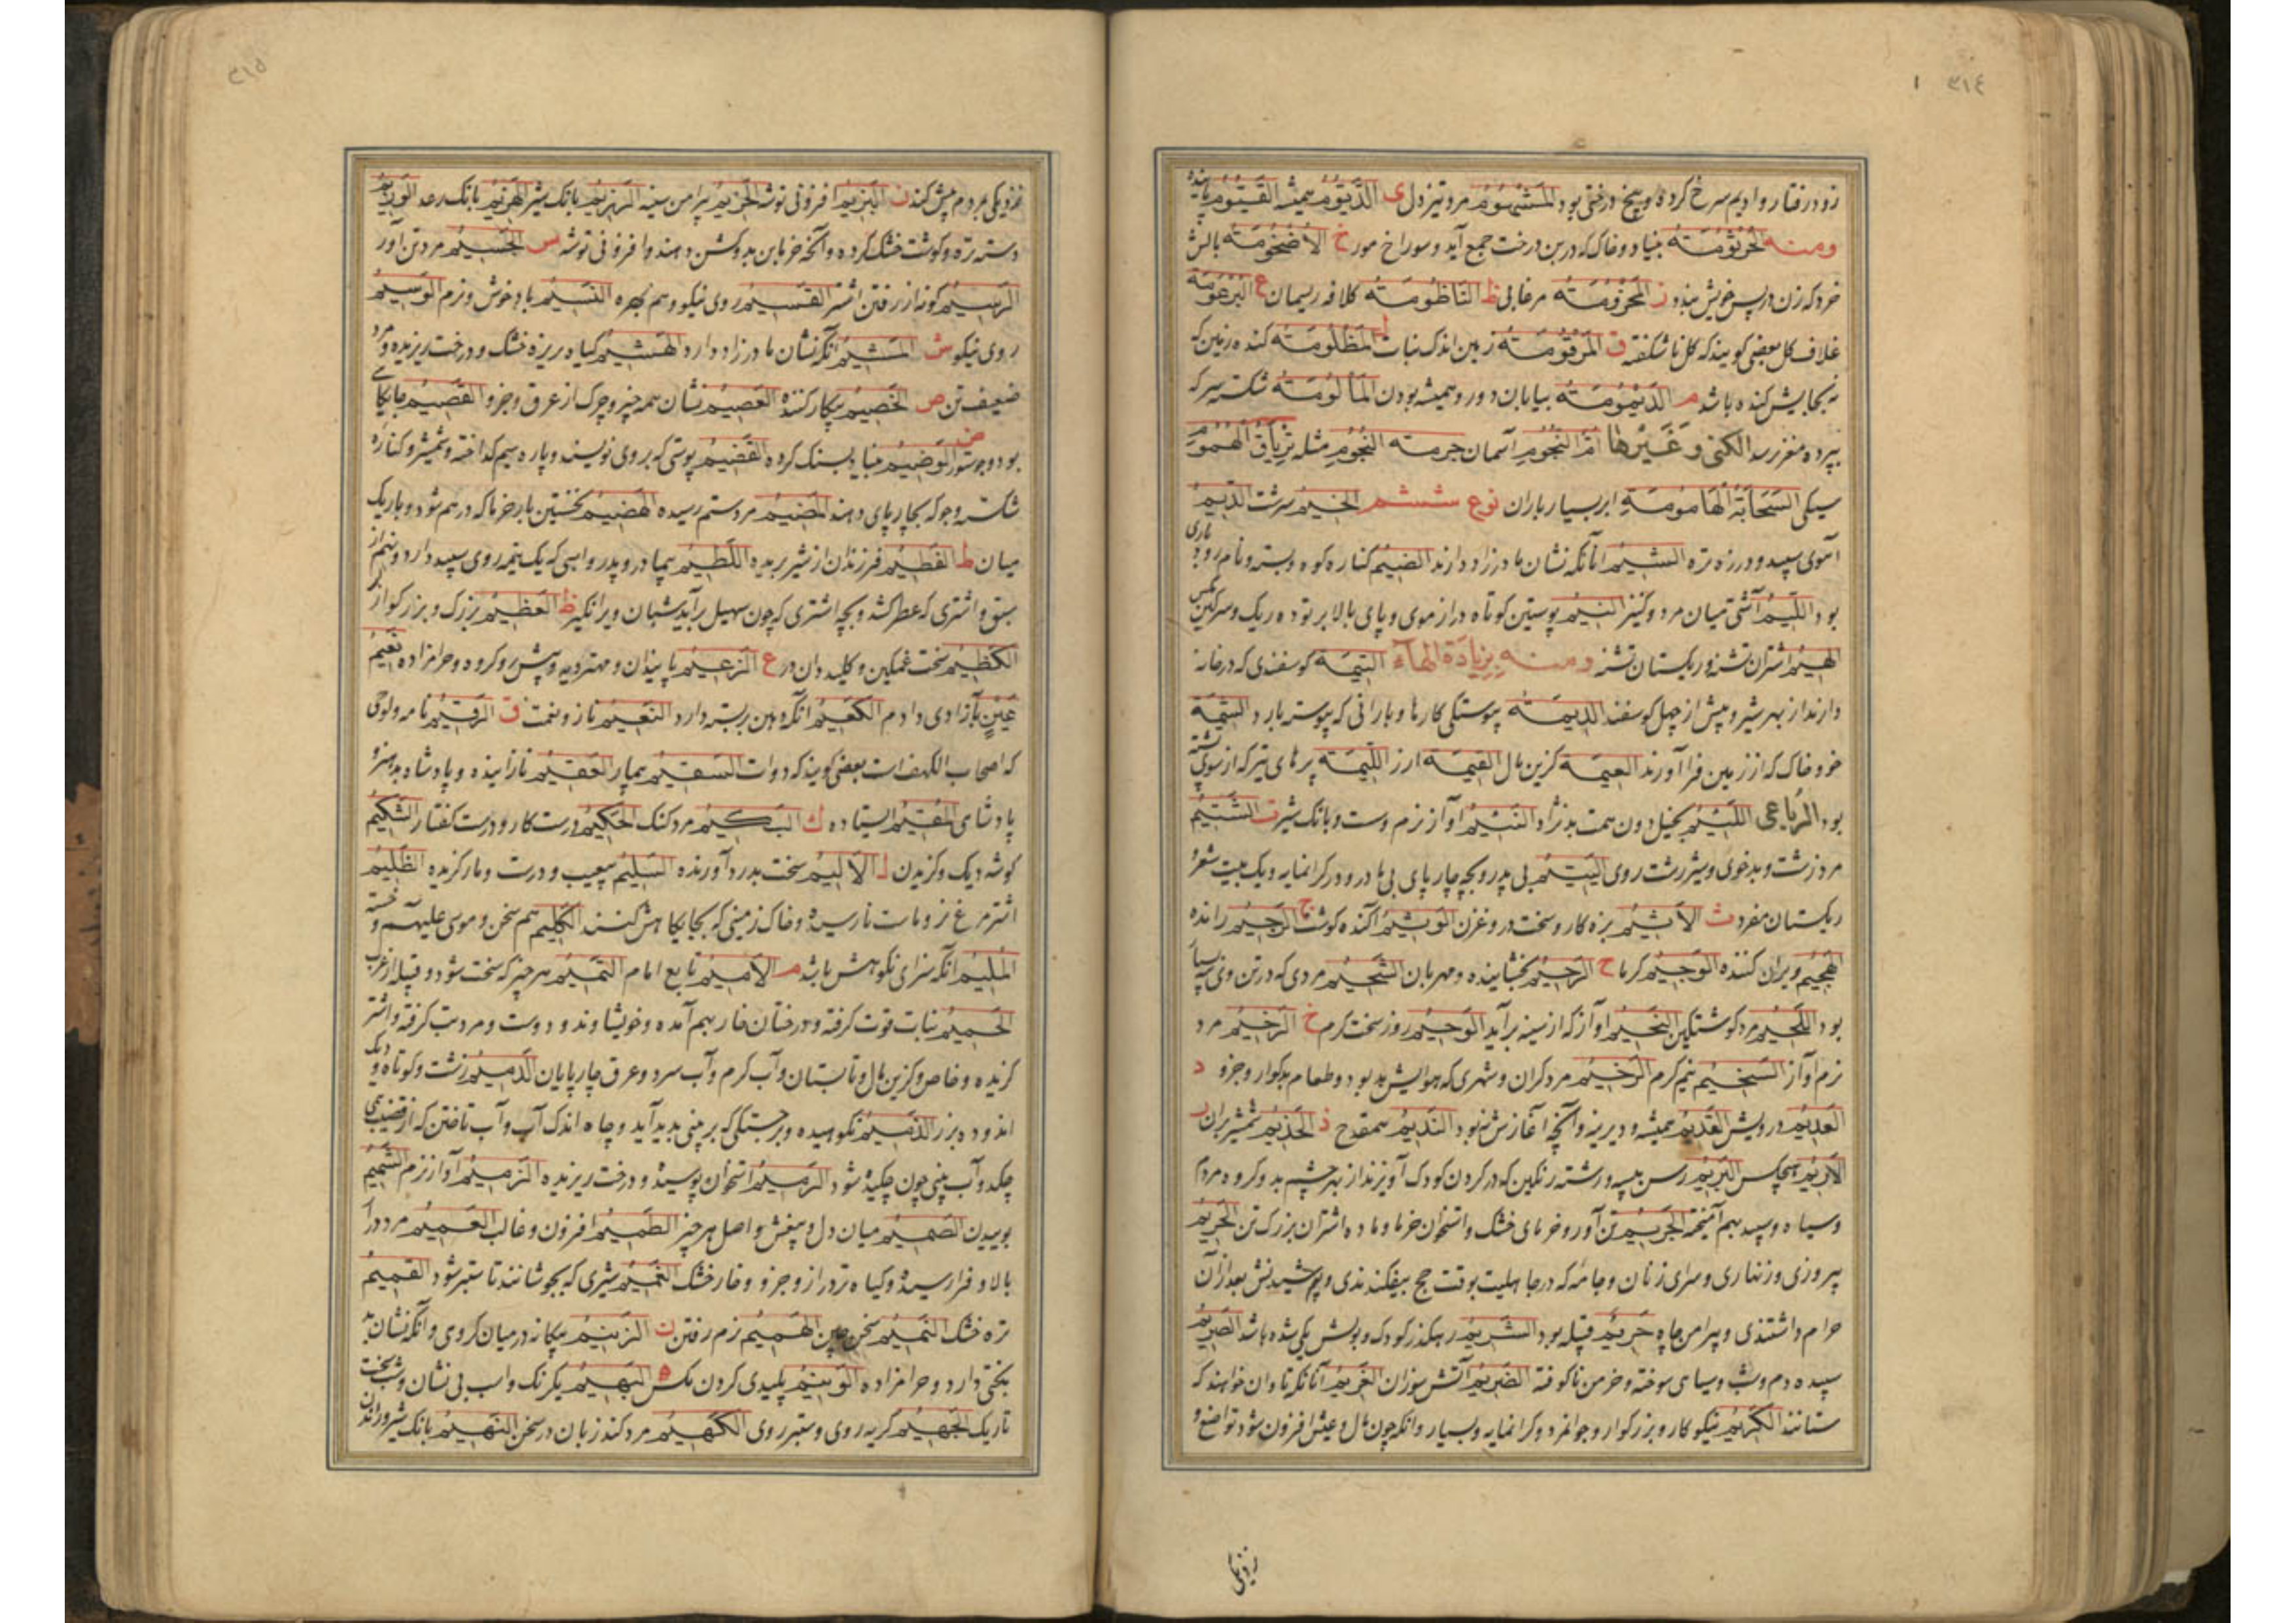 ٣١٤
زود رفتار و ادیم سرخ کرده و بیخ درختی بود المَشْهُومُ مرد تیز دل ی الدَّیْومُ همیشه القَیُّومُ پاینده
ومنه الجُرثُومَة بنیاد و خاک که در بن درخت جمع آید و سوراخ مور خ الاُضْخُومَة بالش
خرد که زن در پس خویش بندد مرغابی ظ النّاظُومَة کلافه ریسمان ع البُرعُومَة
غلاف گل بعضی گویند که گل ناشکفته ق المَرقُومَة زمین اندک نبات ل المَظلُومَة کنده زمین که
نه بجایش کنده باشد م الدَّیْمُومَة بیابان دور و همیشه بودن المَأمُومَة شکسته سر که
بپرده مغز رسد الکنی وغیرها امّ النُّجُومِ آسمان جرمته النُّجُومِ مثله تِریاقُ الهُمُومِ
سیکی السَّحابَةُ الهامُومَة ابر بسیار باران نوع ششم الخِیم سرشت الدِّیم
آهوی سپید و درزه تره الشِّیم آنانکه نشان مادرزاد دارند الضِّیم کناره کوه و بسته و نام رودباری
بود اللِّیم آشتی میان مرد و کنیز النِّیم پوستین کوتاه دراز موی و پای بالا بر توده ریک و سرگین
الهِیم اشتران تشنه و ریکستان تشنه ومنه بزیادة الهاء التِّیمَة گوسفندی که در خانه
دارند از بهر شیر و پیش از چهل گوسفند الدِّیمَة پیوستگی کارها و بارانی که پیوسته بارد الشِّیمَة
خو و خاک که از زمین فرا آورند العِیمَة گزین مال القِیمَة ارز اللِّیمَة پرهای تیر که از سوی
بود الرباعی اللَّئِیم بخیل دون همت بدنژاد النَّئِیم آواز نرم و بانگ شیر ت الشَّتِیم
مرد زشت و بدخوی و شیر زشت روی الیَتِیم بی پدر و بچه چارپای بی مادر و در گرانمایه و یک بیت شعر و
ریکستان مفرد ث الاَثِیم بزه کار و سخت دروغزن الوَثِیم آکنده گوشت ج الرَّجِیم رانده
الهَجِیم ویران کننده الوَجِیم گرما ح الرَّحِیم بخشاینده و مهربان الشَّحِیم مردی که در تن وی پیه
بود اللَّحِیم مرد گوشتگین النَّحِیم آواز که از سینه برآید الوَحِیم روز سخت گرم خ الرَّخِیم مرد
نرم آواز السَّخِیم نیم گرم الوَخِیم مرد گران و شهری که هوایش بد بود و طعام بدگوار و جزو د
العَدِیم درویش القَدِیم همیشه و دیرینه و آنچه آغازش نبود النَّدِیم همقدح ذ الحَذِیم شمشیر بران ر
الاَرِیم هیچکس البَرِیم رسن پیسه و رشته رنگین که در گردن کودک آویزند از بهر چشم بد و گروه مردم
و سیاه و سپید بهم آمیخته الجَرِیم تن آور و خرمای خشک و استخوان خرما و ماده اشتران بزرگ تن الحَرِیم
پیروزی و زنهاری و سرای زنان و جامه که در جاهلیت بوقت حج بیفکندندی و پوشیدنش بعد از آن
حرام داشتندی و پیرامن چاه حَرِیم قبیله بود الشَّرِیم رهگذر کودک و بولش یکی شده باشد الصَّرِیم
سپیده دم و شب و سیاهی سوخته و خرمن ناکوفته الضَّرِیم آتش سوزان الغَرِیم آنانکه تاوان خواهند که
ستانند الکَرِیم نیکوکار و بزرگوار و جوانمرد و گرانمایه و بسیار و آنکه چون مال و عیش افزون شود تواضع و
٣١٥
نزدیکی بمردم بیش کند ز البَزِیم افزونی توشه الحَزِیم پیرامن سینه الهَزِیم بانگ رعد الوَزِیم
دسته تره و گوشت خشک کرده و آنچه خرمابن بدو گشن دهند و افزونی توشه س الجَسِیم مرد تن آور
الرَّسِیم گونه از رفتن اشتر القَسِیم روی نیکو و هم بهره النَّسِیم باد خوش و نرم الوَسِیم
روی نیکو ش المَشِیم آنکه نشان مادرزاد دارد الهَشِیم گیاه ریزه خشک و درخت ریزیده و مرد
ضعیف تن ص الخَصِیم پیکار کننده العَصِیم نشان همه چیز و چرک از عرق و جزو القَصِیم جایگاهی
بود و جو ستور ض الوَضِیم بنیاد بسنگ کرده القَضِیم پوستی که بر وی نویسند و پاره سیم گداخته و شمشیر و کناره
شکسته و جو که بچارپای دهند الهَضِیم مرد ستم رسیده الهَضِیم نخستین بار خرما که در هم شود و باریک
میان ط الفَطِیم فرزندان از شیر بریده اللَّطِیم بی مادر و پدر و اسپی که یک نیمه روی سپید دارد و نهم از
سبق و اشتری که عطر کشد و بچه اشتری که چون سهیل برآید شبان ویرا ظ العَظِیم بزرگ و بزرگوار
الکَظِیم سخت غمگین و کلیددان در ع الزَّعِیم پایندان و مهتر دیه و پیش رو گروه و حرامزاده نَعِیم
عَیْنٍ بآزادی دادم الکَعِیم آنکه دهن بربسته دارد النَّعِیم ناز و نعمت ق الرَّقِیم نامه و لوحی
که اصحاب الکهف است بعضی گویند که دوات السَّقِیم بیمار العَقِیم نازاینده و پادشاه
پادشاهی المُقِیم ایستاده ك البَکِیم مرد گنگ الحَکِیم درست کار و درست گفتار الشَّکِیم
گوشه دیک و گزیدن ل الاَلِیم سخت بدرد آورنده السَّلِیم بی عیب و درست و مار گزیده الظَّلِیم
اشترمرغ نر و ماست نارسیده و خاک زمینی که بجایگاهش کنند الکَلِیم هم سخن و موسی علیه و خسته
المُلِیم آنکه سزای نکوهش باشد م الاَمِیم تابع امام التَّمِیم هر چیز که سخت شود و قبیله از عرب
الحَمِیم نبات قوت گرفته و درختان خار بهم آمده و خویشاوند و دوست و مرد تب گرفته و اشتر
گزیده و خاص و گزین مال و تابستان و آب گرم و آب سرد و عرق چارپایان الدَّمِیم زشت و کوتاه و دیک
اندوده بزر الذَّمِیم نکوهیده و برجستگی که بر بینی بدید آید و چاه اندک آب و آب تاختن که از قضیب
چکد و آب بینی چون چکیده شود الرَّمِیم استخوان پوسیده و درخت ریزیده الزَّمِیم آواز نرم الشَّمِیم
بوییدن الصَّمِیم میان دل و مغزش و اصل هر چیز الطَّمِیم افزون و غالب العَمِیم مرد دراز
بالا و فرا رسیده و گیاه تر دراز و جزو و خار خشک الغَمِیم شیری که بجوشانند تا ستبر شود القَمِیم
تره خشک النَّمِیم سخن چین الهَمِیم نرم رفتن ن الزَّنِیم بیگانه در میان گروهی و آنکه نشان بد
بختی دارد و حرامزاده الوَنِیم پلیدی کردن مگس ه البَهِیم یکرنگ و اسب بی نشان و شب سخت
تاریک الجَهِیم کریه روی و ستبر روی الکَهِیم مرد کند زبان در سخن النَّهِیم بانگ شیر و راندن
نزدیکی